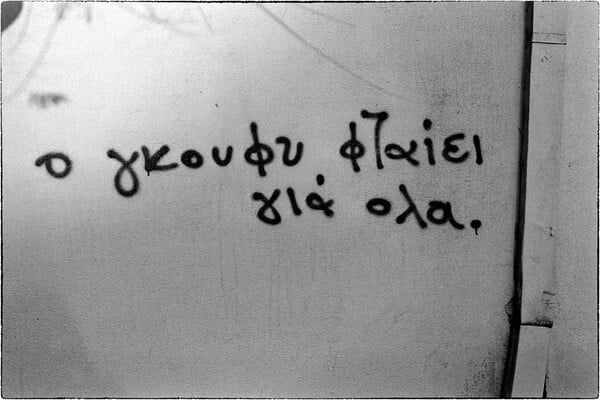 ο γκουφυ φΤαίει
γιά ολα.